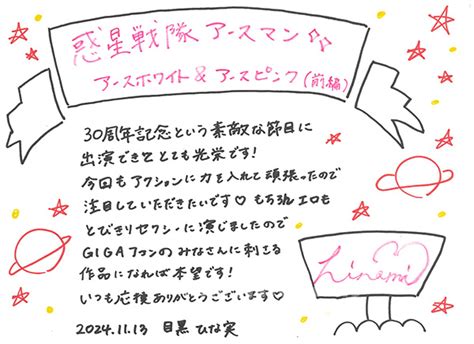 惑星戦隊 アースマン
アースホワイト & アースピンク (前編)
30周年記念という素敵な節目に
出演できてとても光栄です!
今回もアクションに力を入れて頑張ったので
注目していただきたいです♡ もちろんエロも
とびきりセクシーに演じましたので
GIGAファンのみなさんに刺さる
作品になれば本望です!
いつも応援ありがとうございます♡
2024.11.13 目黒 ひな実
hinami